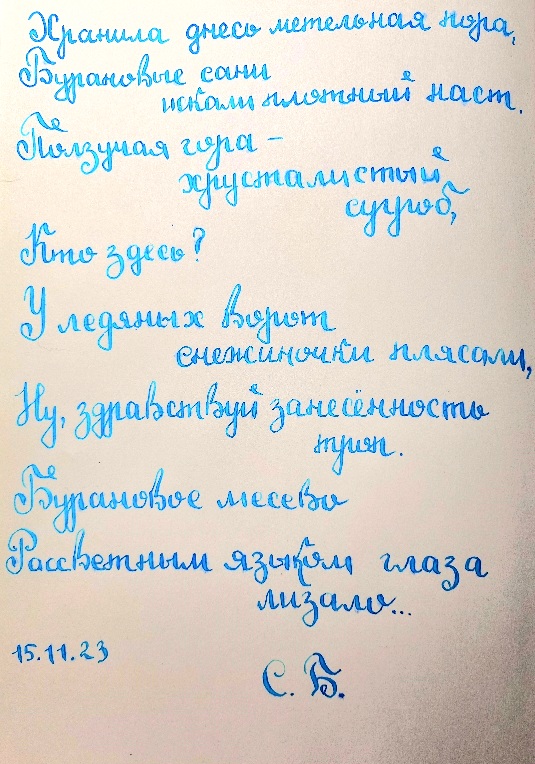 Хранила днесь метельная пора,
Бурановые сани
искали плотный наст.
Ползучая гора –
хрусталистый
сугроб,
Кто здесь?
У ледяных ворот
снежиночки плясали,
Ну, здравствуй занесённость
троп.
Бурановое месево
Рассветным языком глаза
лизало...
15.11.23
С. Б.